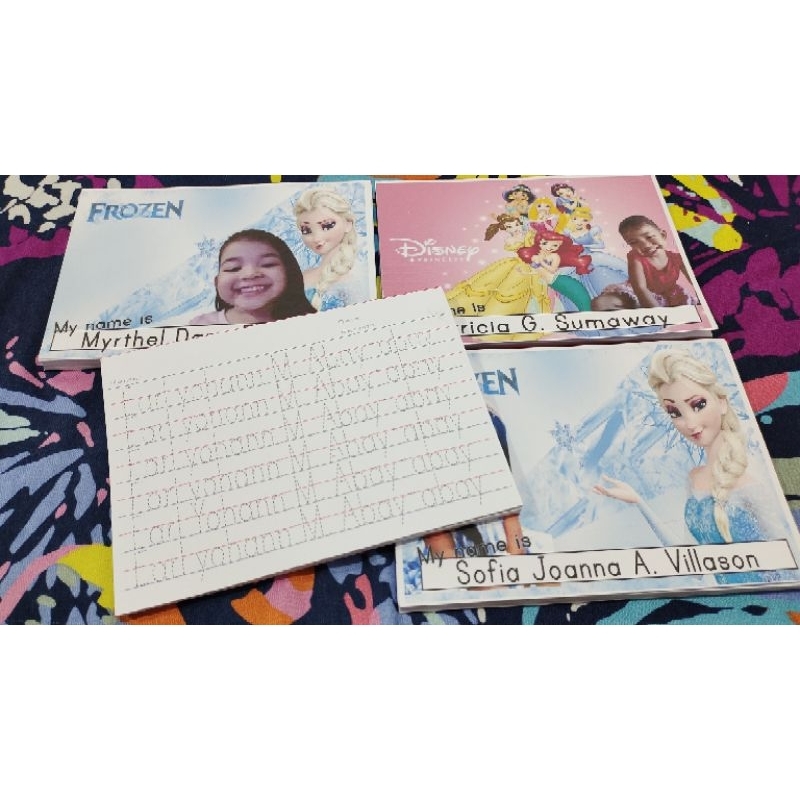 FROZEN
My name is
Myrthel
Disney
PRINCESS
is
G. Sumaway
Earl yohann M. Abay abay
Earl yohann M. Abay abay
Earl yohann M. Abay abay
Earl yohann M. Abay abay
Earl yohann M. Abay abay
Earl yohann M. Abay abay
My name is
Sofia Joanna A. Villason